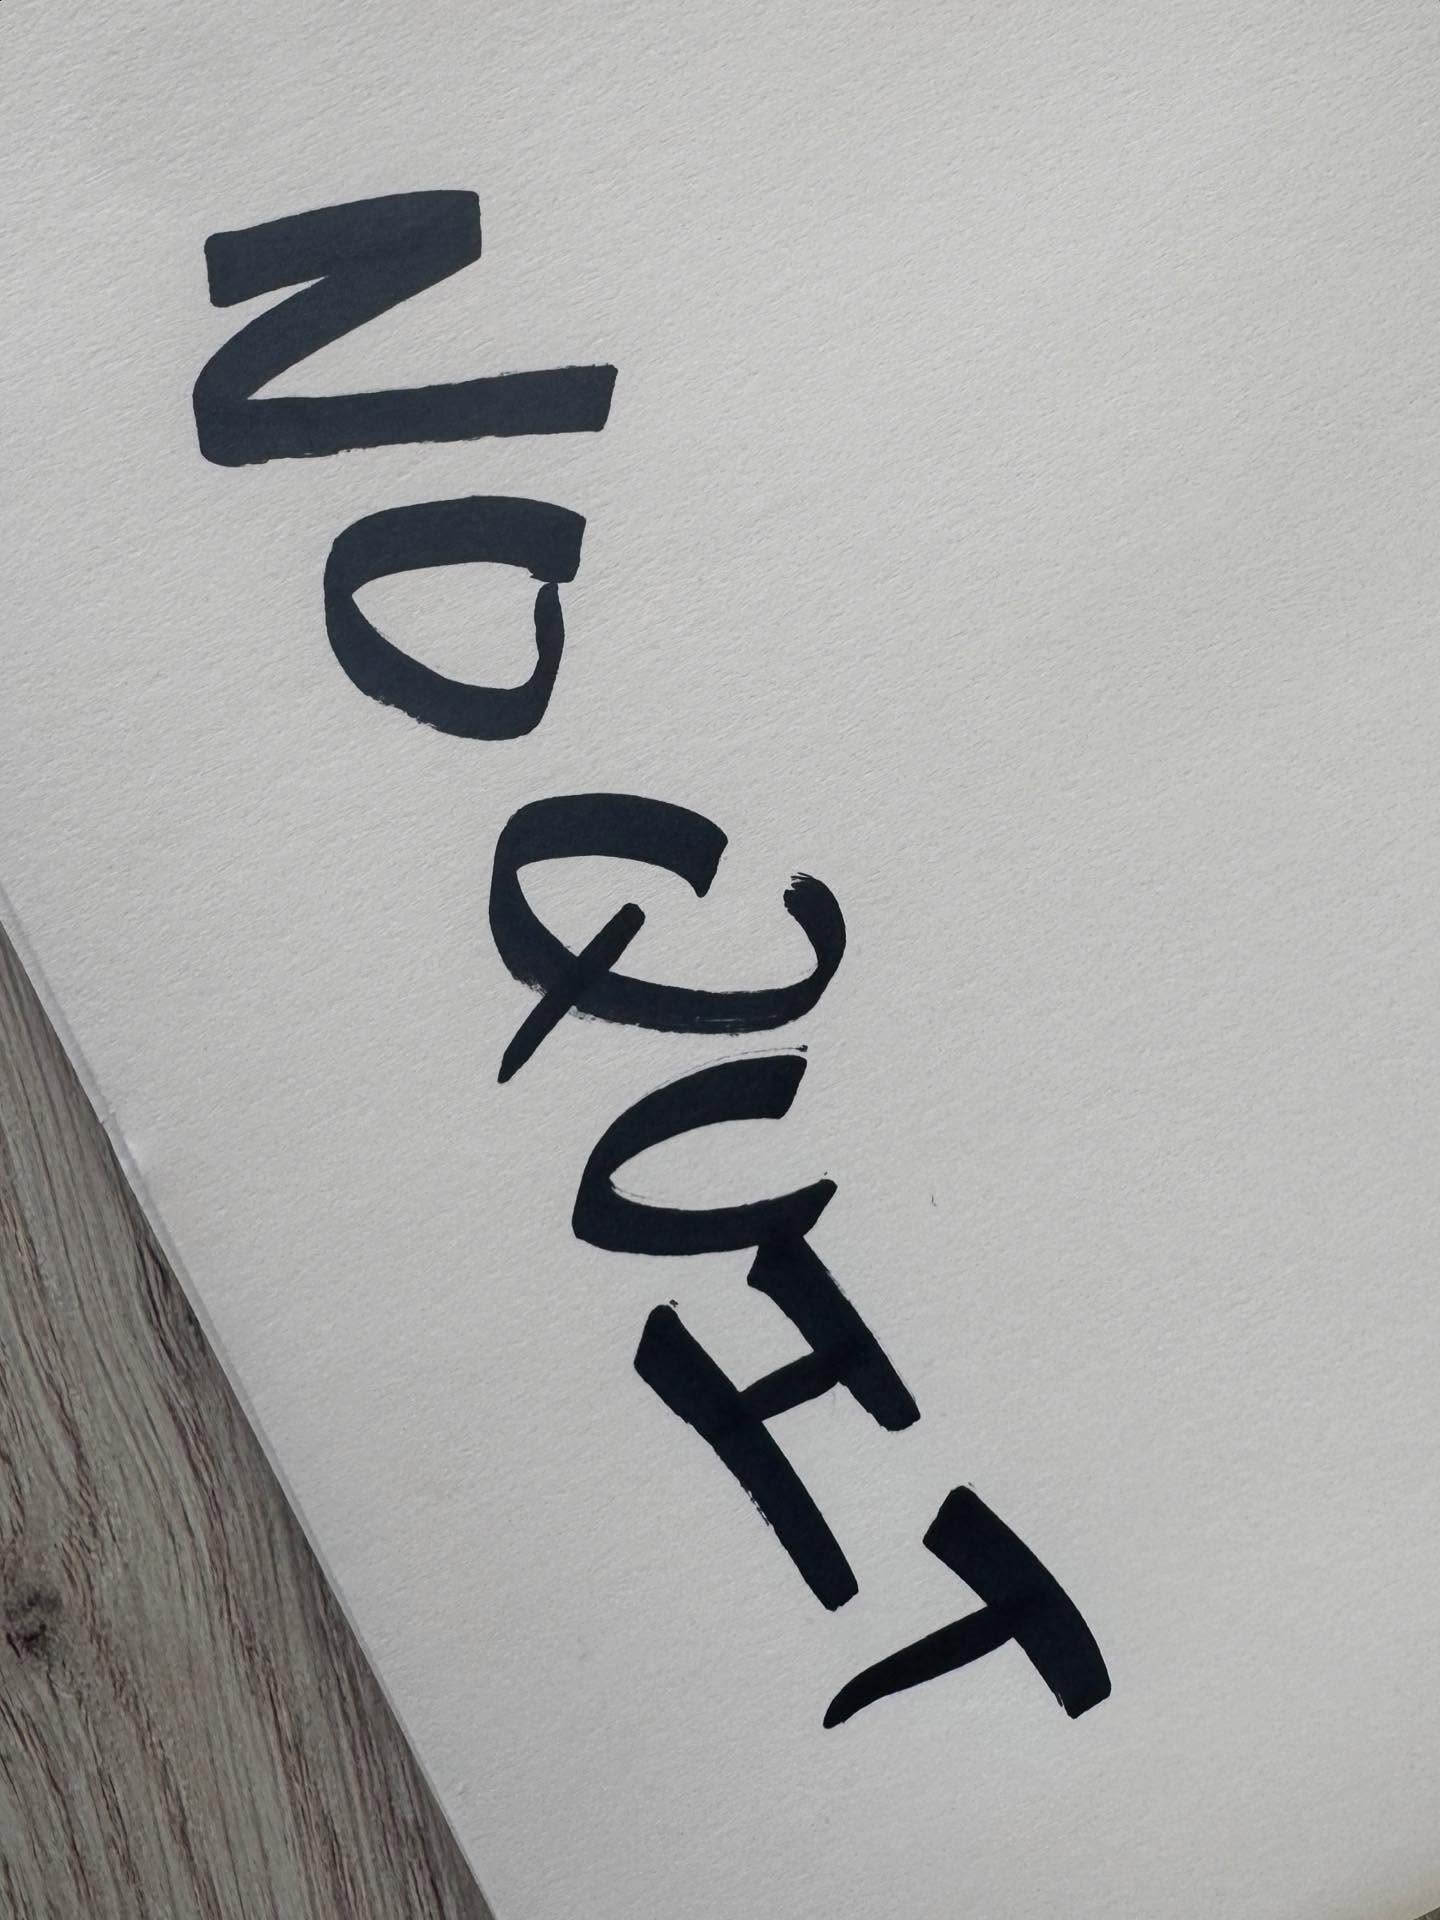 NO QUIT